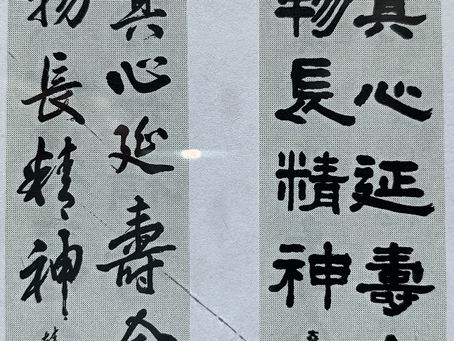 真心延壽
物長精神
真心延壽
物長精神